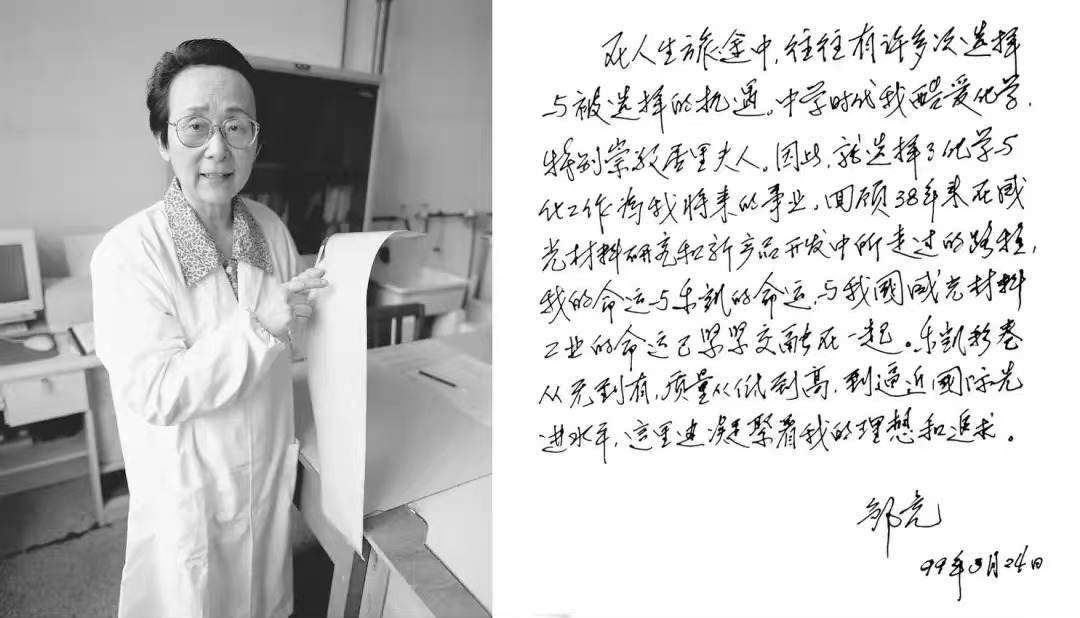 在人生旅途中，往往有许多次选择
与被选择的机遇。中学时代我酷爱化学，
特别崇敬居里夫人。因此，就选择了化学与
化工作为我将来的事业。回顾38年来在感
光材料研究和新产品开发中所走过的路程，
我的命运与乐凯的命运，与我國感光材料
工业的命运已紧紧交融在一起。乐凯彩卷
从无到有，质量从低到高，到逼近國际先
进水平，这里边凝聚着我的理想和追求。
邹竞
99年3月24日